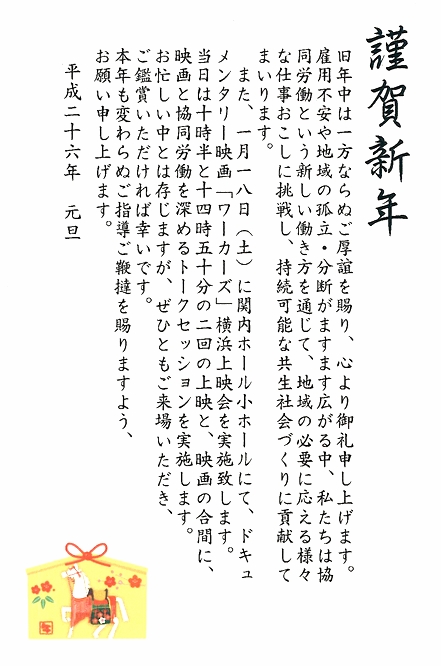 謹賀新年
旧年中は一方ならぬご厚誼を賜り、心より御礼申し上げます。
雇用不安や地域の孤立・分断がますます広がる中、私たちは協
同労働という新しい働き方を通じて、地域の必要に応える様々
な仕事おこしに挑戦し、持続可能な共生社会づくりに貢献して
まいります。
また、一月一八日（土）に関内ホール小ホールにて、ドキュ
メンタリー映画「ワーカーズ」横浜上映会を実施致します。
当日は十時半と十四時五十分の二回の上映と、映画の合間に、
映画と協同労働を深めるトークセッションを実施します。
お忙しい中とは存じますが、ぜひともご来場いただき、
ご鑑賞いただければ幸いです。
本年も変わらぬご指導ご鞭撻を賜りますよう、
お願い申し上げます。
平成二十六年　元旦